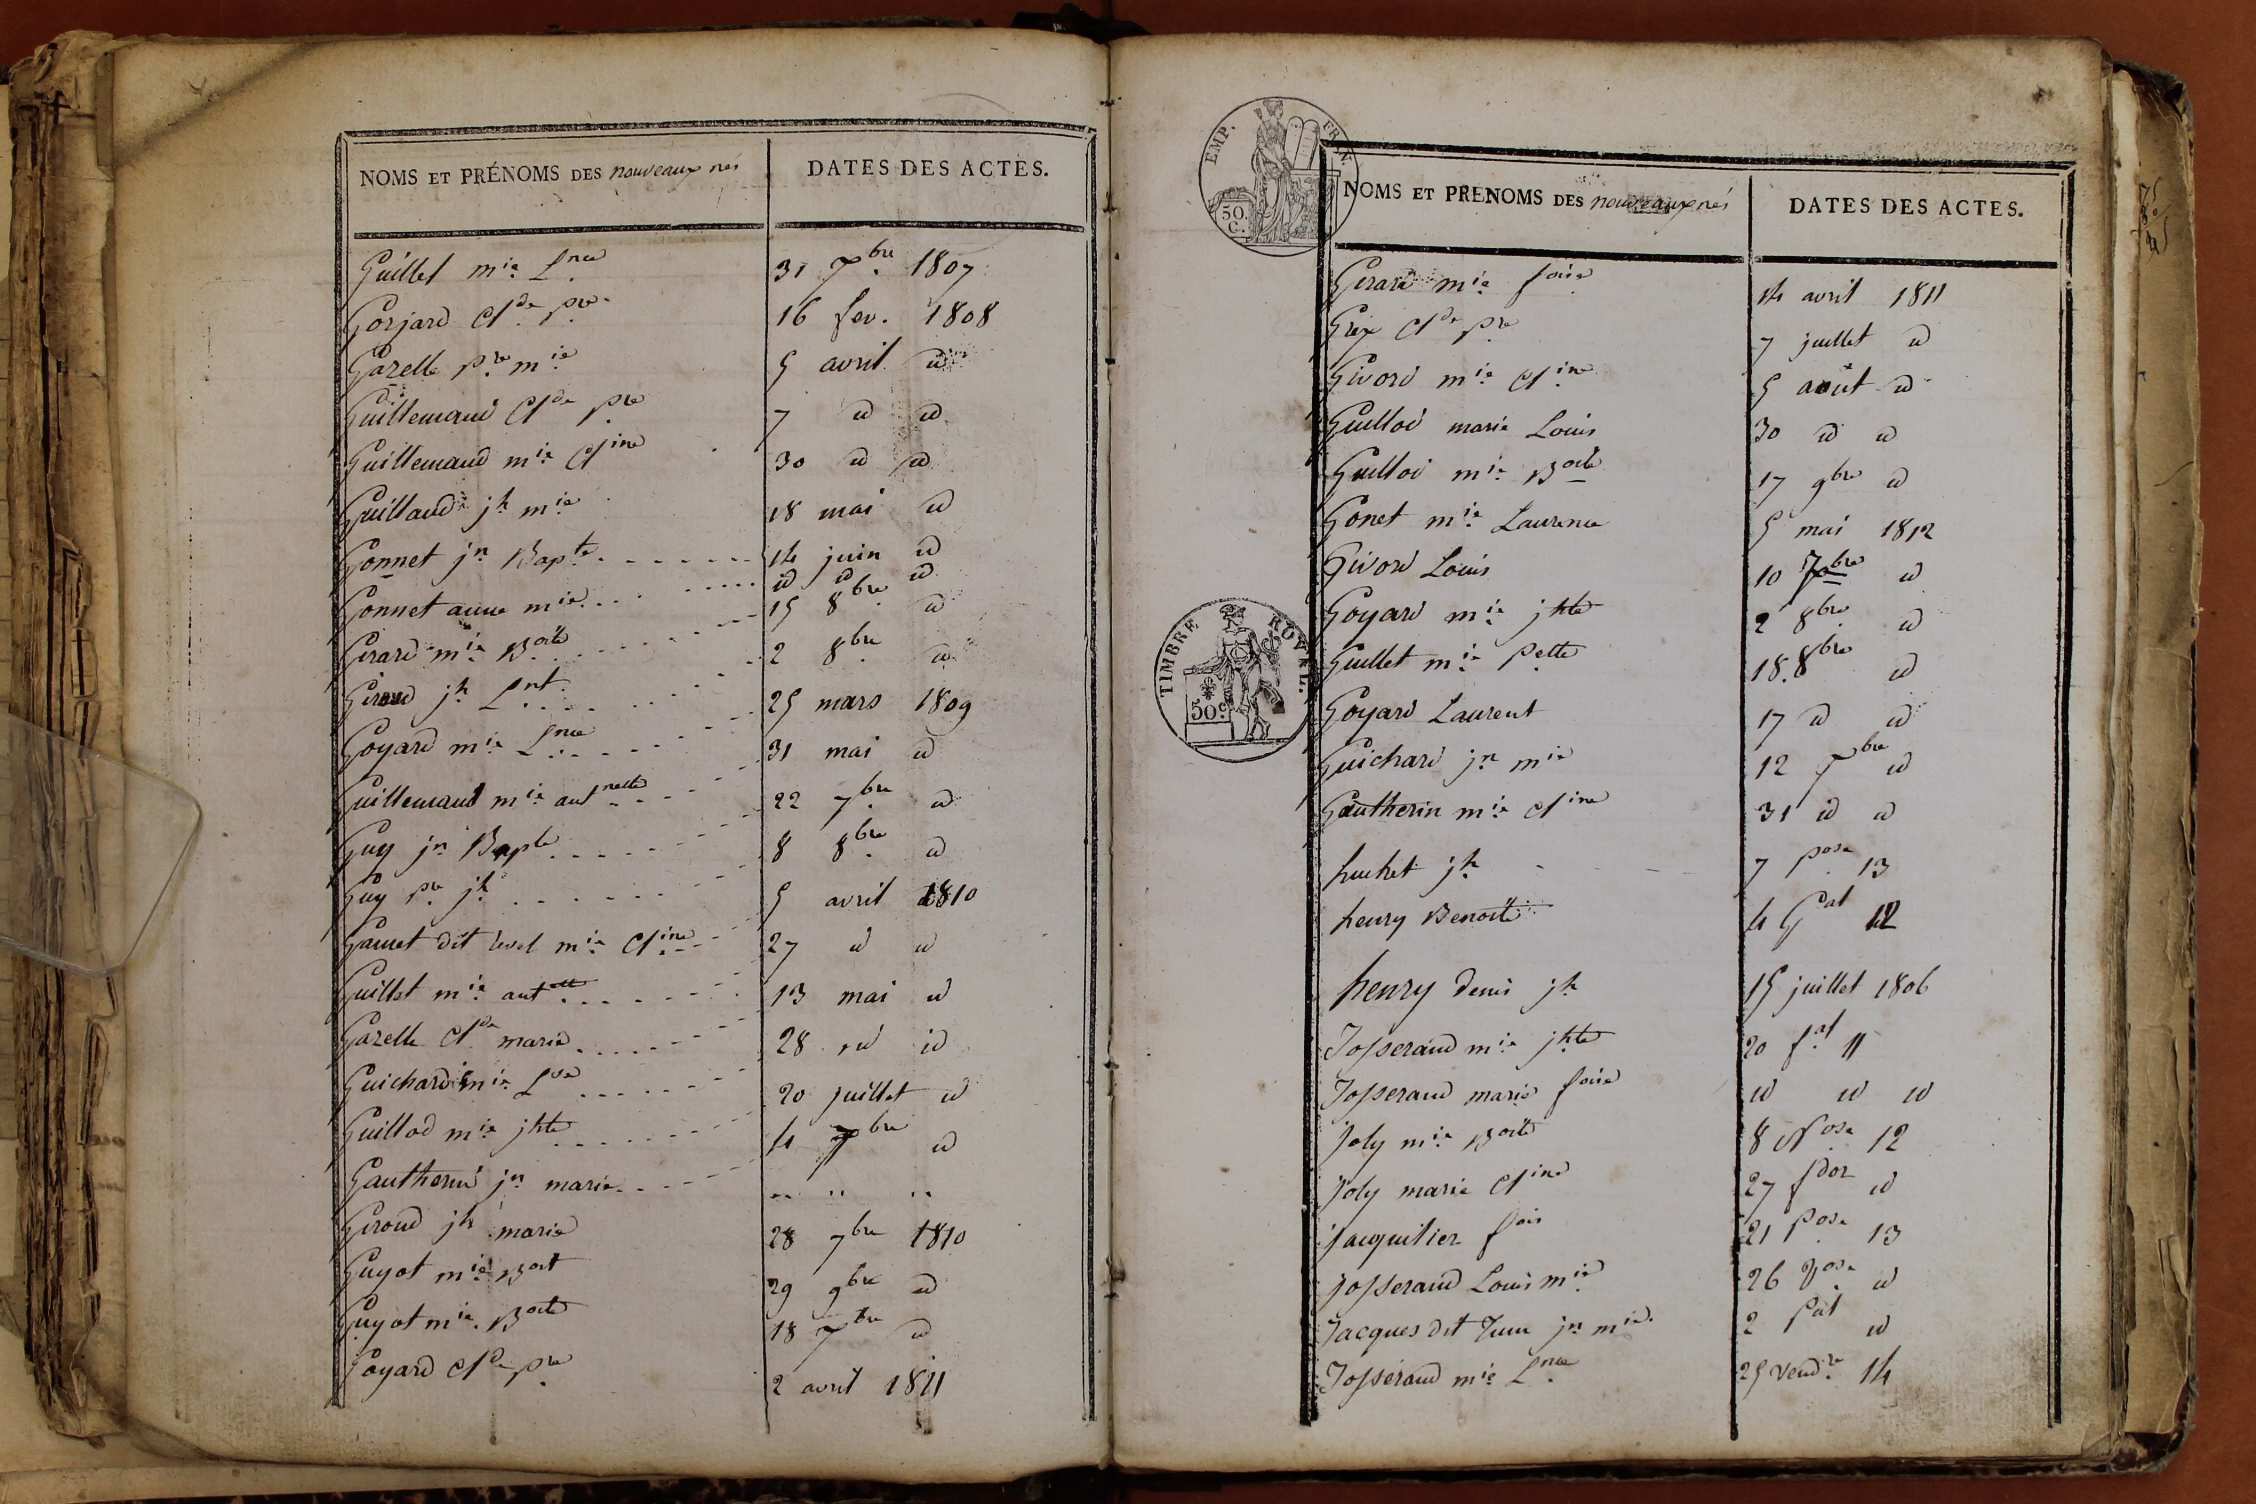 NOMS ET PRÉNOMS DES nouveaux nés
DATES DES ACTES.
Guillet mie Lnce 31 Xbre 1807
Gorjard Clde pre 16 fev. 1808
Gazelle pre mie 5 avril id
Guillemaud Clde pre 7 id id
Guillemaud mie Cline 30 id id
Guillaud jh mie 18 mai id
Gonnet jn Bapte 14 juin id
Gonnet anne mie id id id
Girard mie Boite 15 8bre id
Giroud jh Lnt 2 8bre id
Goyard mie Lnce 25 mars 1809
Guillemaud mie antnette 31 mai id
Guy jn Bapte 22 7bre id
Guy pre jh 8 8bre id
Garnet dit mie Cline 5 avril 1810
Guillet mie antette 27 id id
Gazelle Clde marie 13 mai id
Guichard mie Lse 28 id id
Guillod mie jhte 20 juillet id
Gautherin jn marie 4 7bre id
Giroud jh marie 28 7bre 1810
Guyot mie Boit 29 9bre id
Guyot mie Boite 18 Xbre id
Goyard Clde pre 2 avril 1811
EMP. FRAN.
50. C.
NOMS ET PRENOMS DES nouveaux nés
DATES DES ACTES.
Girard mie foise 14 avril 1811
Grex Clde pre 7 juillet id
Givord mie Cline 5 août id
Guillod marie Louis 30 id id
Guillod mie Boite 17 9bre id
Gonet mie Laurence 5 mai 1812
Givord Louis 10 7bre id
Goyard mie jhte 2 8bre id
Guillet mie pette 18. 8bre id
TIMBRE ROYAL.
50c
Goyard Laurent 17 id id
Guichard jn mie 12 Xbre id
Gautherin mie Cline 31 id id
huchet jh 7 pose 13
henry Benoite 4 Gal 12
henry denis jh 15 juillet 1806
Josserand mie jhte 20 fal 11
Josserand marie foise id id id
Joly mie Boite 8 Nose 12
Joly marie Cline 27 fdor id
Jacquilier fois 21 pose 13
Josserand Louis mie 26 Vose id
Jacques dit jn mie 2 pal id
Josserand mie Lnce 25 vendre 14